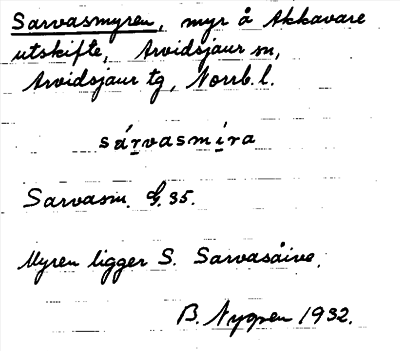 Sarvasmyren, myr å Akkavare
utskifte, Arvidsjaur sn,
Arvidsjaur tg, Norrb. l.
sárvasmíra
Sarvasm. G. 35.
Myren ligger S. Sarvasåive.
B. Nygren 1932.